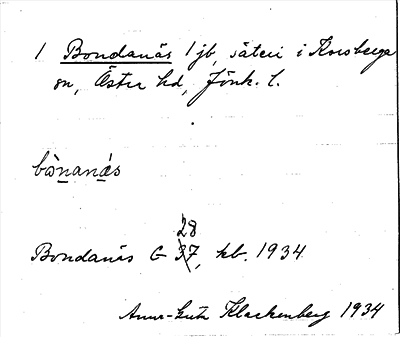 1 Bondanäs 1 jb, säteri i Korsberga
sn, Östra hd, Jönk. l.
bònanás
28
Bondanäs G 37, kb. 1934
Anna-Greta Klackenberg 1934